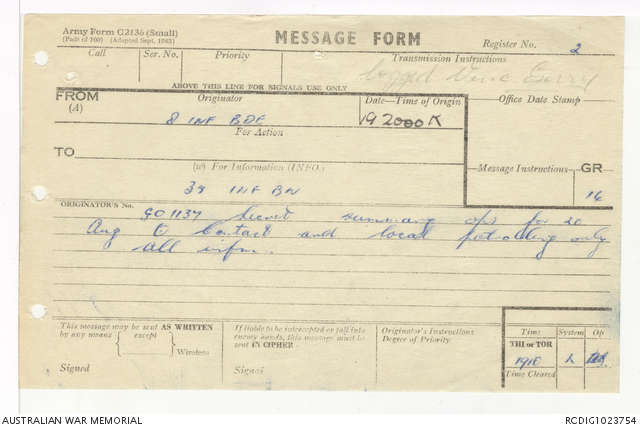 Army Form C2136 (Small)
(Pads of 100) (Adopted Sept., 1963)
MESSAGE FORM
Register No. 2
Call Ser. No. Priority Transmission Instructions
ABOVE THIS LINE FOR SIGNALS USE ONLY
FROM
(A)
Originator
8 INF BDE
Date—Time of Origin
192000K
Office Date Stamp
For Action
TO
(W) For Information (INFO.)
39 INF BN
Message Instructions
GR
16
ORIGINATOR'S No.
GO1137 Secret summary ops for 20
Aug contact and local patrolling only
all infm.
This message may be sent AS WRITTEN
by any means except
Wireless
Signed
If liable to be intercepted or fall into
enemy hands, this message must be
sent IN CIPHER
Signed
Originator's Instructions
Degree of Priority
Time System Op
THI or TOR
1910 L
Time Cleared
AUSTRALIAN WAR MEMORIAL
RCDIG1023754